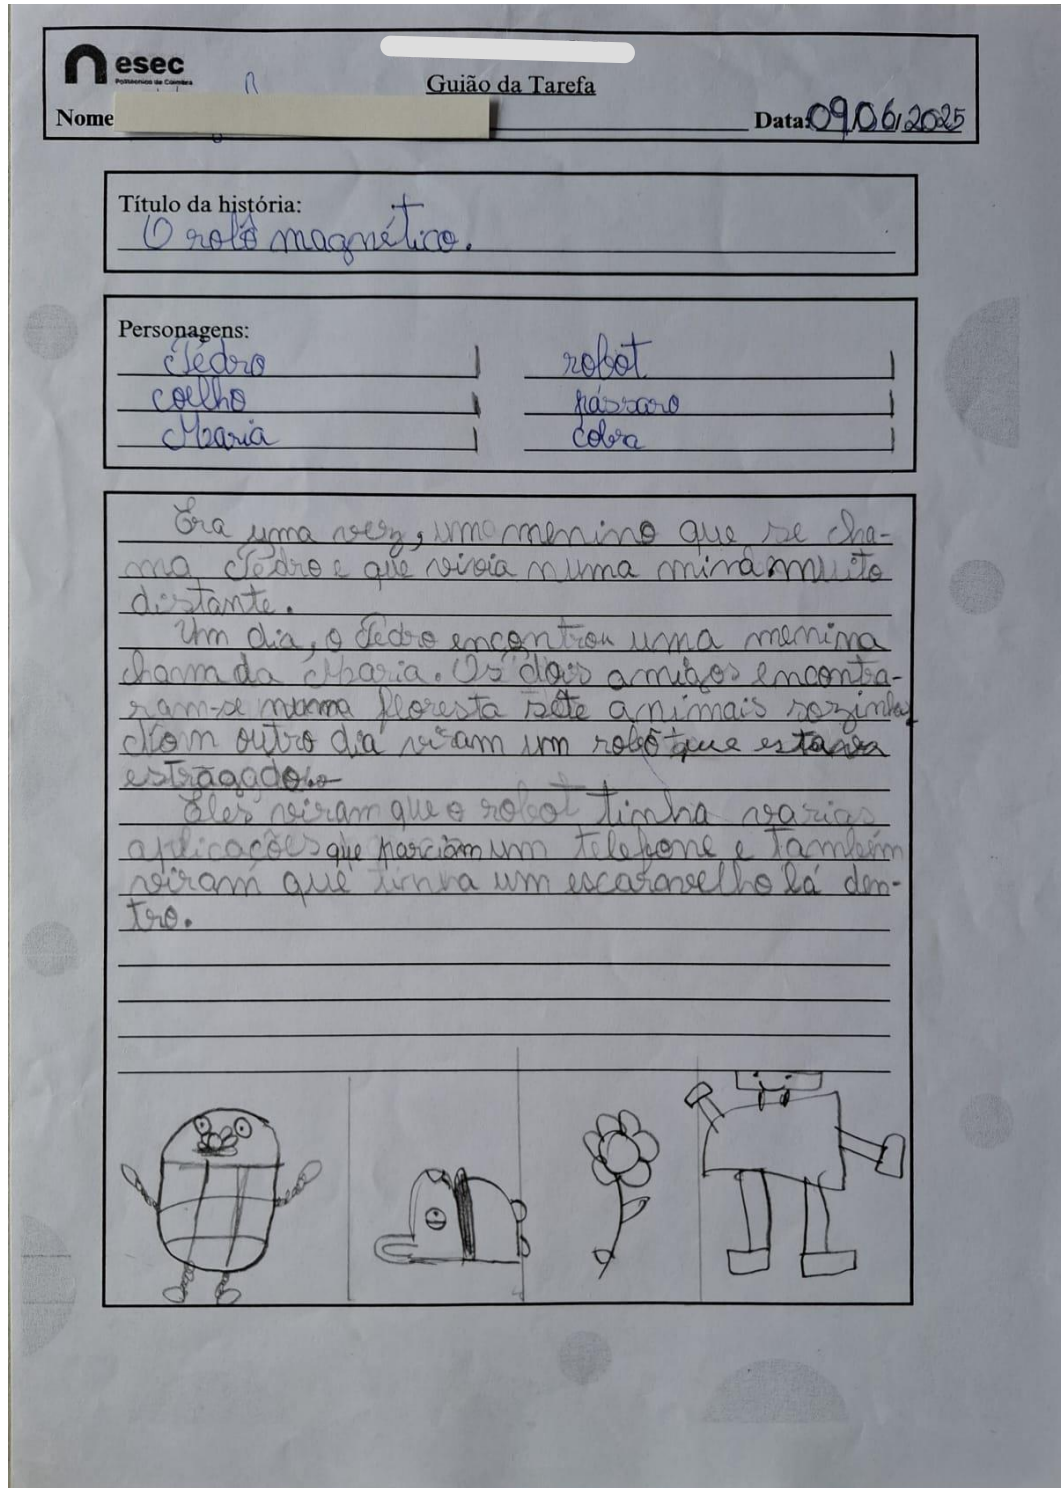 esec
Politécnico de Coimbra
Guião da Tarefa
Nome
Data: 09/06/2025
Título da história:
O robô magnético.
Personagens:
Pedro
robot
coelho
pássaro
Maria
cobra
Era uma vez, um menino que se cha-
ma Pedro e que vivia numa mina muito
distante.
Um dia, o Pedro encontrou uma menina
chamda Maria. Os dois amigos encontra-
ram-se numa floresta sete animais sozinhos
Num outro dia viram um robô que estava
estragado.
Eles viram que o robot tinha varias
aplicações que parciam um telefone e também
viram que tinha um escaravelho lá den-
tro.